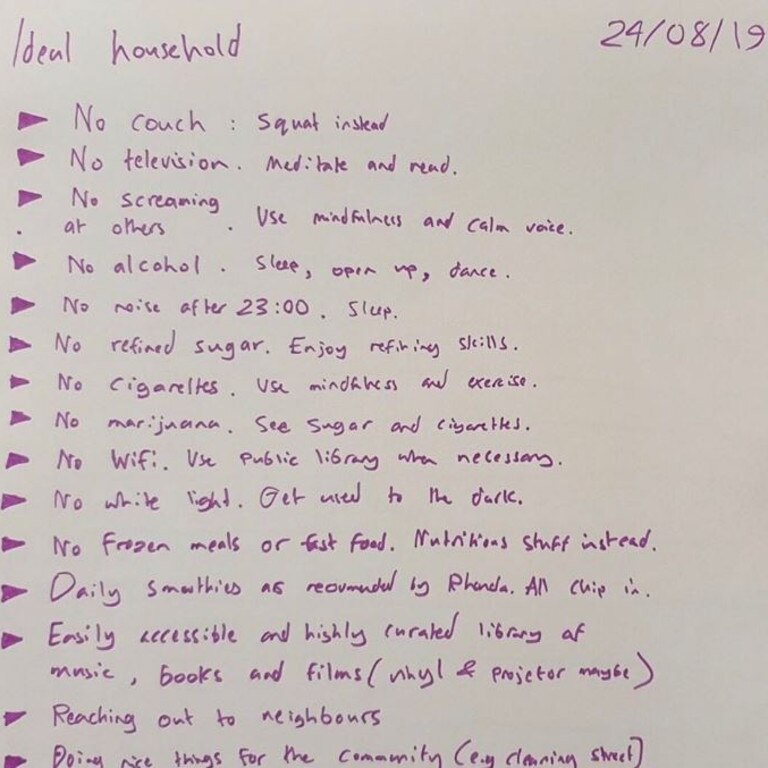 Ideal household 24/08/19
► No couch : Squat instead
► No television. Meditate and read.
► No screaming
at others . Use mindfulness and calm voice.
► No alcohol. Sleep, open up, dance.
► No noise after 23:00. Sleep.
► No refined sugar. Enjoy refining skills.
► No cigarettes. Use mindfulness and exercise.
► No marijuana. See Sugar and cigarettes.
► No Wifi. Use public library when necessary.
► No white light. Get used to the dark.
► No Frozen meals or fast food. Nutritious stuff instead.
► Daily smoothies as recommended by Rhonda. All chip in.
► Easily accessible and highly curated library of
music, books and films (vinyl & projector maybe)
► Reaching out to neighbours
► Doing nice things for the community (e.g cleaning street)